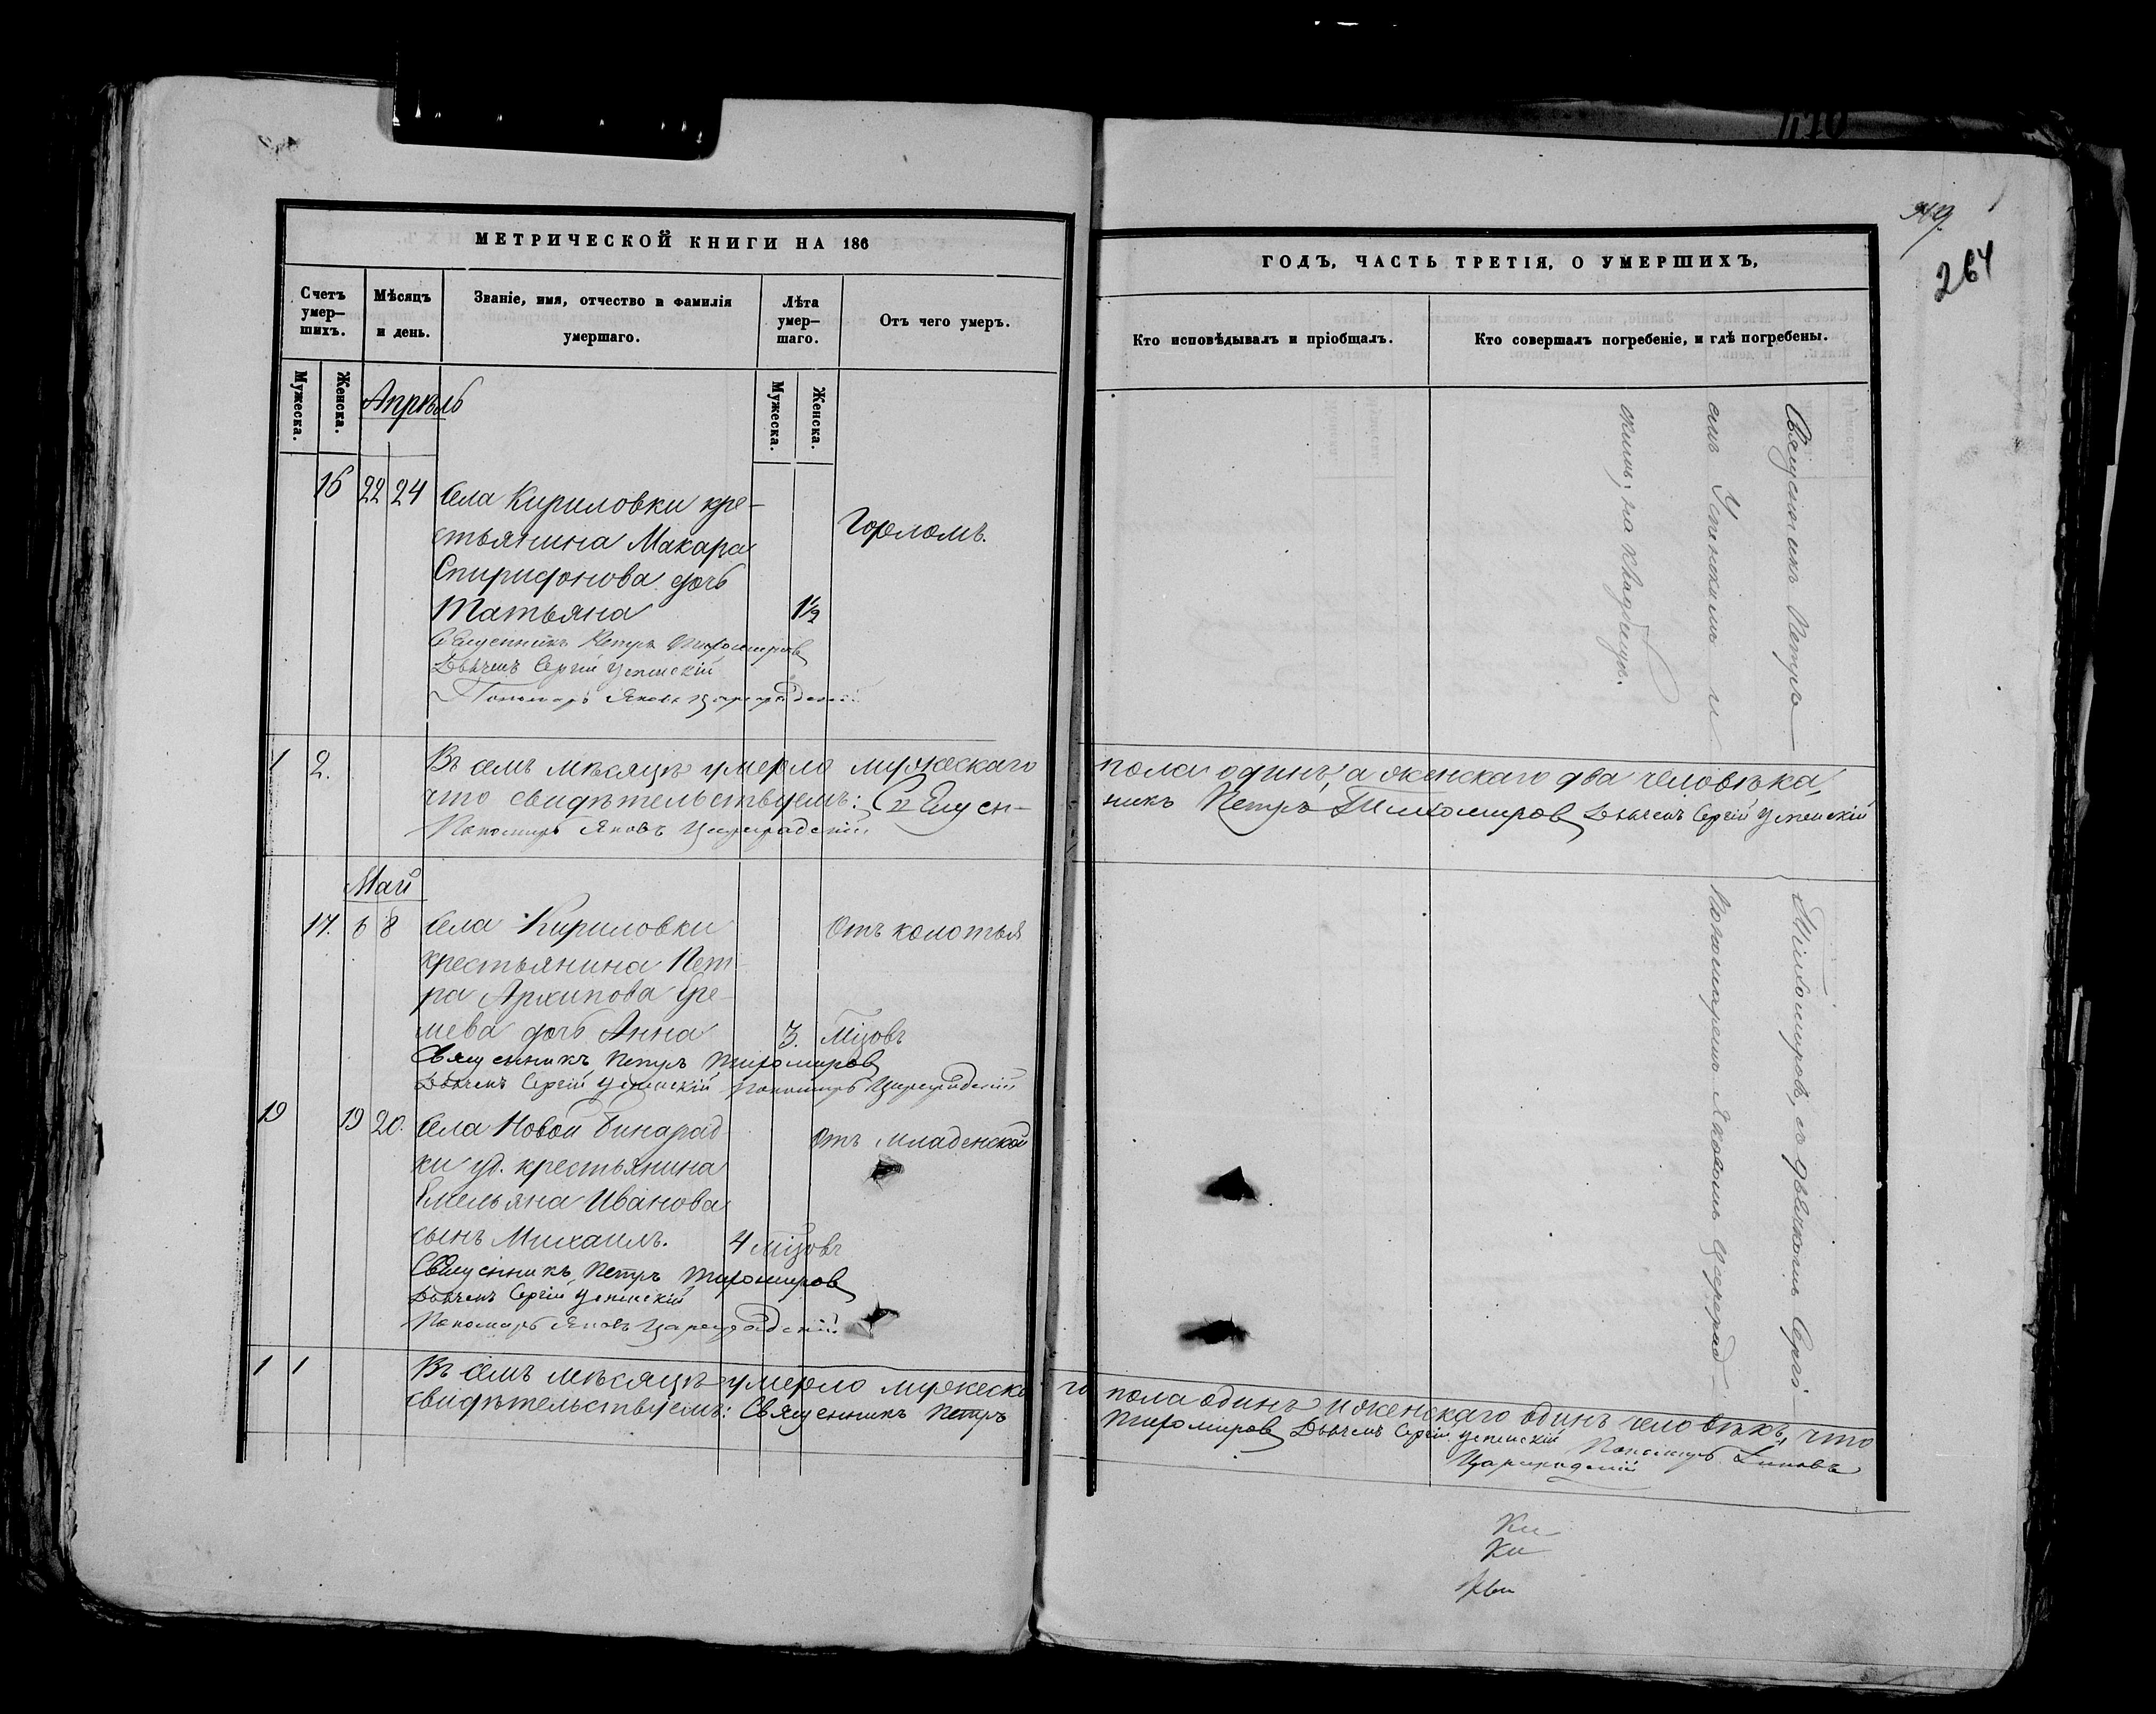 264
МЕТРИЧЕСКОЙ КНИГИ НА 186
Счетъ умер-шихъ.
Мѣсяцъ и день.
Званіе, имя, отчество и фамилія умершаго.
Лѣта умер-шаго.
Отъ чего умеръ.
Мужеска.
Женска.
Мужеска.
Женска.
Апрѣль
16 22 24 Села Кириловки кре-
стьянина Макара
Горломъ.
Спиридонова дочь
Татьяна 1½
Священникъ Петръ Тихомировъ
Дьячекъ Сергій Успенскій
Пономарь Яковъ Цареградскій
1 2. Въ семъ мѣсяцѣ умерло мужескаго
что свидѣтельствуемъ: Священ-
Пономарь Яковъ Цареградскій
Май
17. 6 8 Села Кириловки Отъ колотья
крестьянина Пет-
ра Архипова
дочь Анна 3. Мцовъ
Священникъ Петръ Тихомировъ
Дьячекъ Сергій Успенскій Пономарь Цареградскій
19 19 20. Села Новой Бинарад-
Отъ младенской
ки уд. крестьянина
Емельяна Иванова
сынъ Михаилъ. 4 мцовъ
Священникъ Петръ Тихомировъ
Дьячекъ Сергій Успенскій
Пономарь Яковъ Цареградскій
1 1 Въ семъ мѣсяцѣ умерло мужеска
свидѣтельствуемъ: Священникъ Петръ
ГОДЪ, ЧАСТЬ ТРЕТІЯ, О УМЕРШИХЪ,
Кто исповѣдывалъ и пріобщалъ.
Кто совершалъ погребеніе, и гдѣ погребены.
Священникъ Петръ
Тихомировъ, съ дьячкомъ Сергі
емъ Успенскимъ и
Пономаремъ Яковомъ Цареград-
скимъ; на кладбищѣ.
пола одинъ, а женскаго два человѣка,
никъ Петръ Тихомировъ Дьячекъ Сергій Успенскій
го пола одинъ и женскаго одинъ человѣкъ, что
Тихомировъ Дьячекъ Сергій Успенскій Пономарь Яковъ
Цареградскій
Ки
Ки